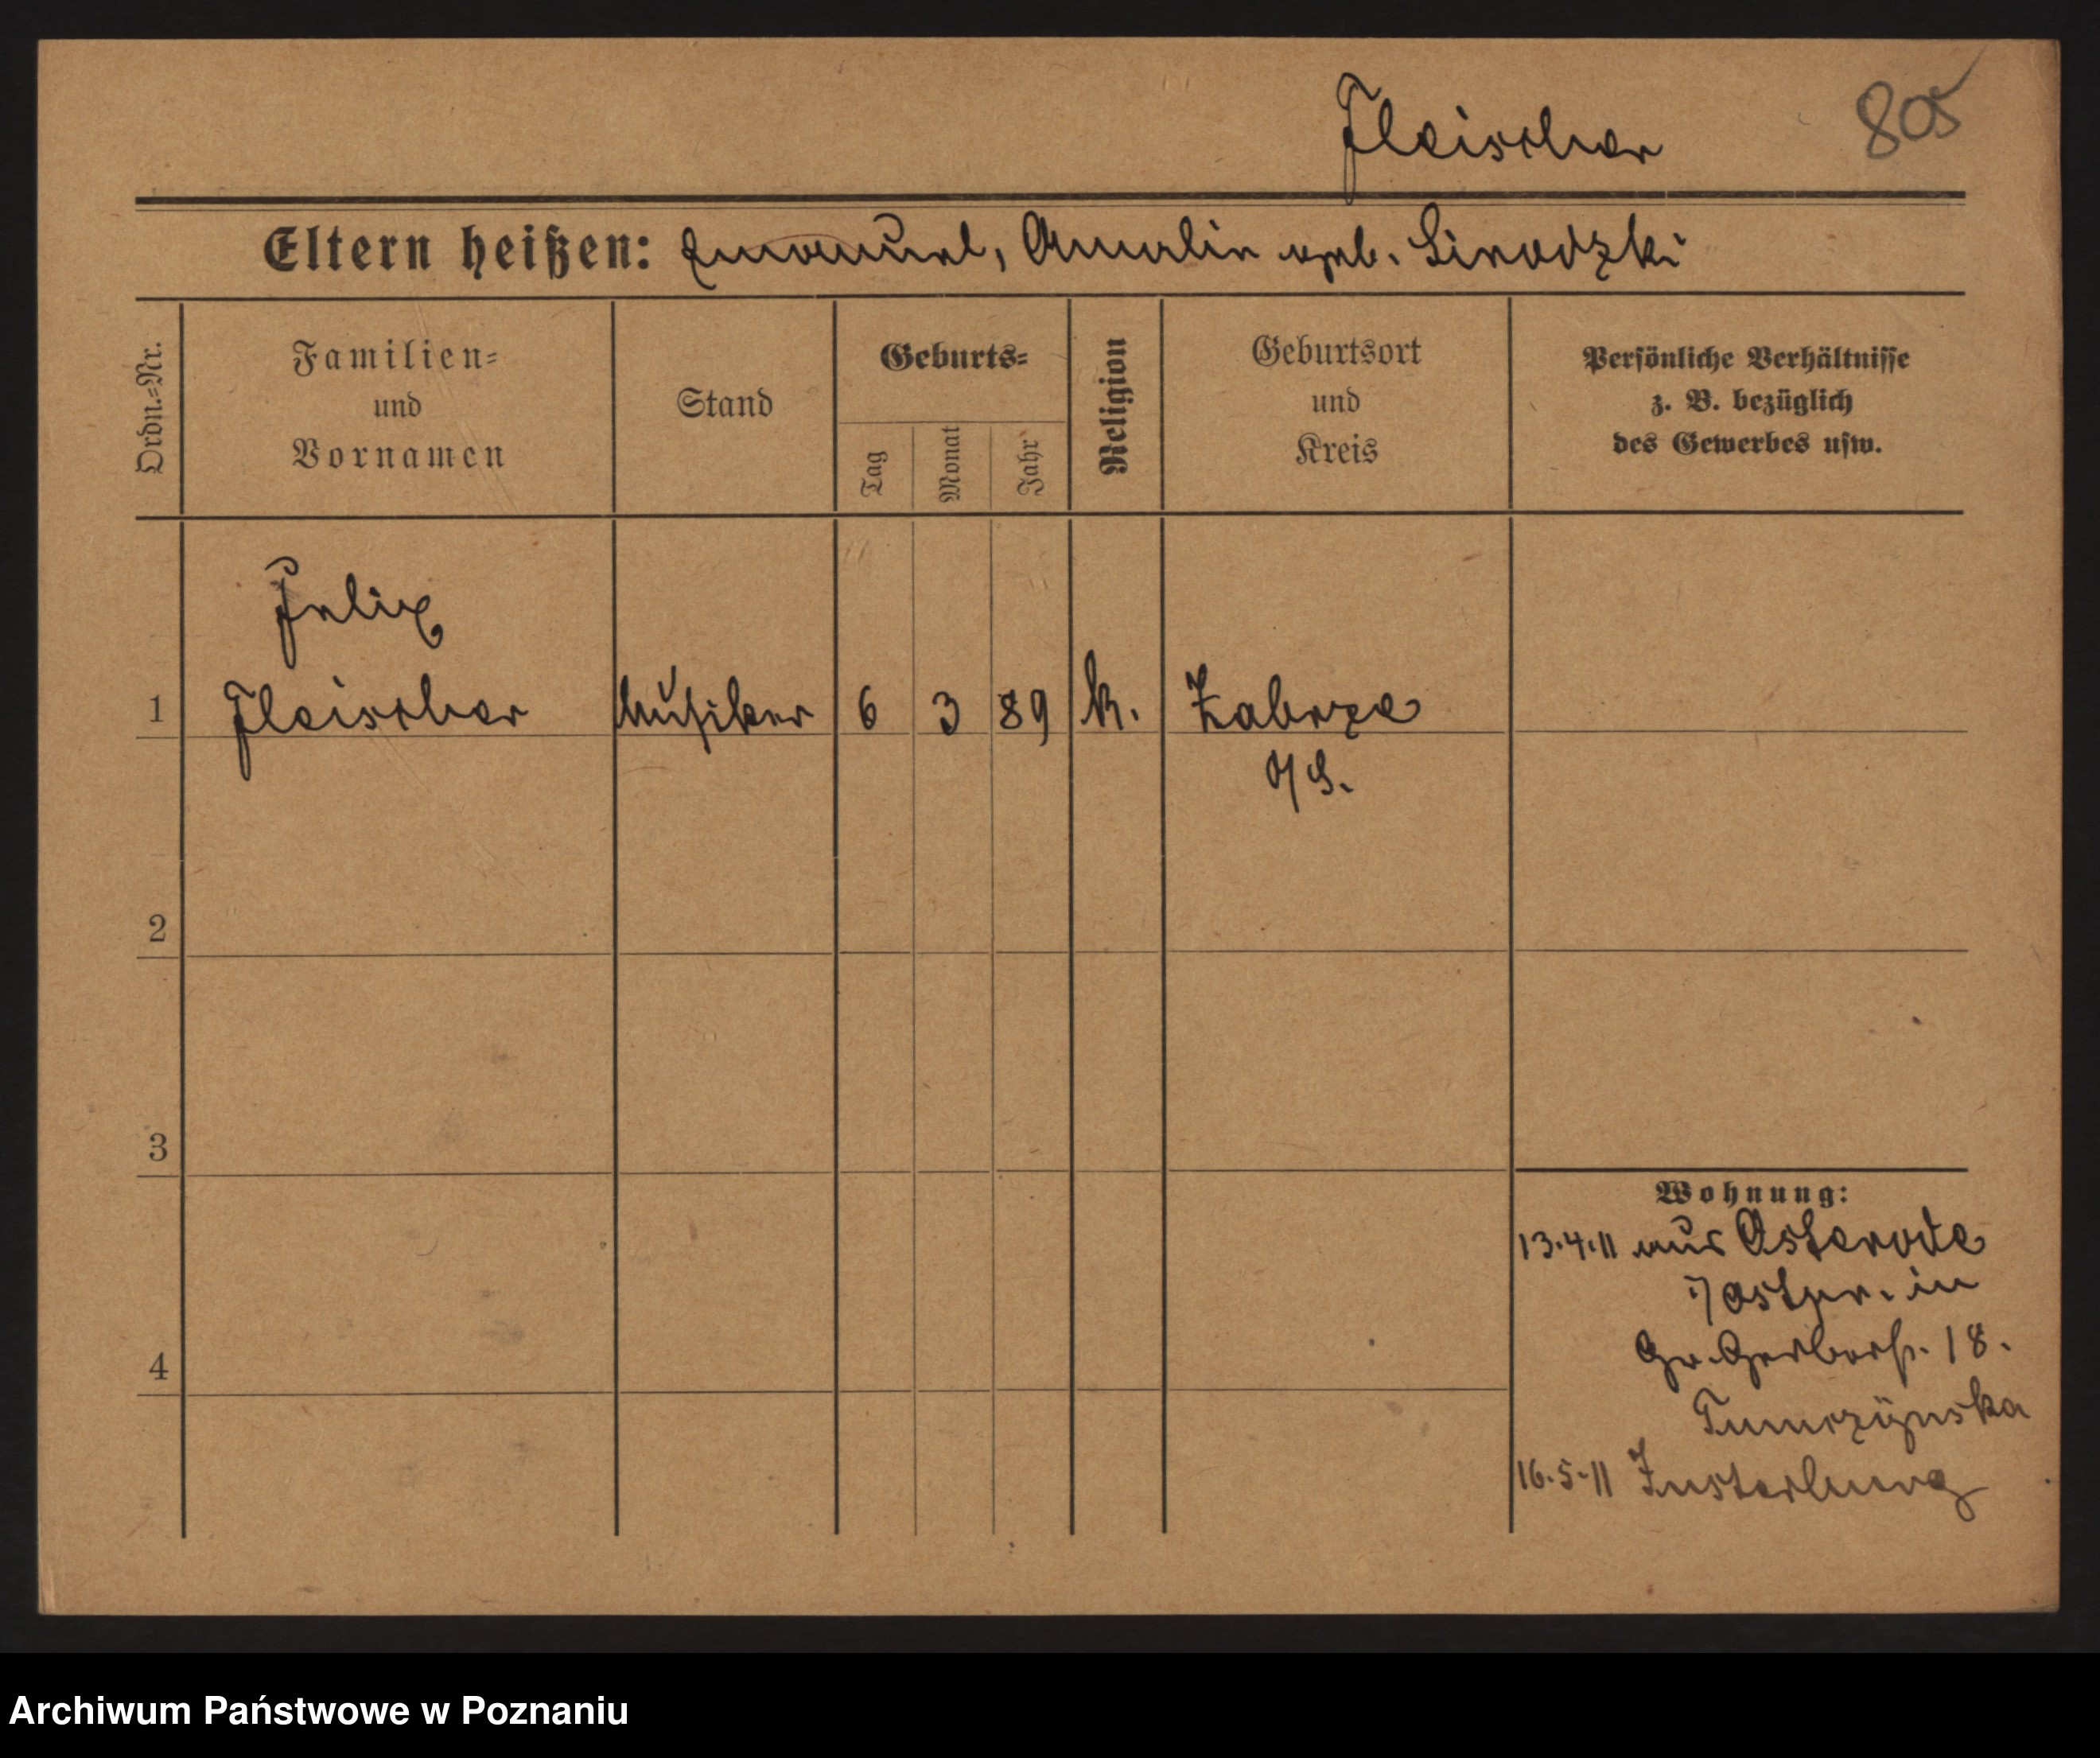 Fleischer 805
Eltern heißen: Emanuel, Amalie geb. Sieradzki
Ordn.=Nr.
Familien=
und
Vornamen
Stand
Geburts=
Tag
Monat
Jahr
Religion
Geburtsort
und
Kreis
Persönliche Verhältnisse
z. B. bezüglich
des Gewerbes usw.
Felix
1 Fleischer Musiker 6 3 89 k. Zabrze
O/S.
2
3
4
Wohnung:
13.4.11 aus Osterode
i/ostpr. in
Gr. Gerberstr. 18.
16.5.11 Insterburg
Archiwum Państwowe w Poznaniu